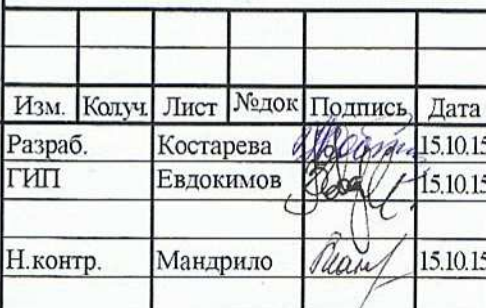 Изм. Колуч Лист №док Подпись Дата
Разраб. Костарева 15.10.15
ГИП Евдокимов 15.10.15
Н.контр. Мандрило 15.10.15